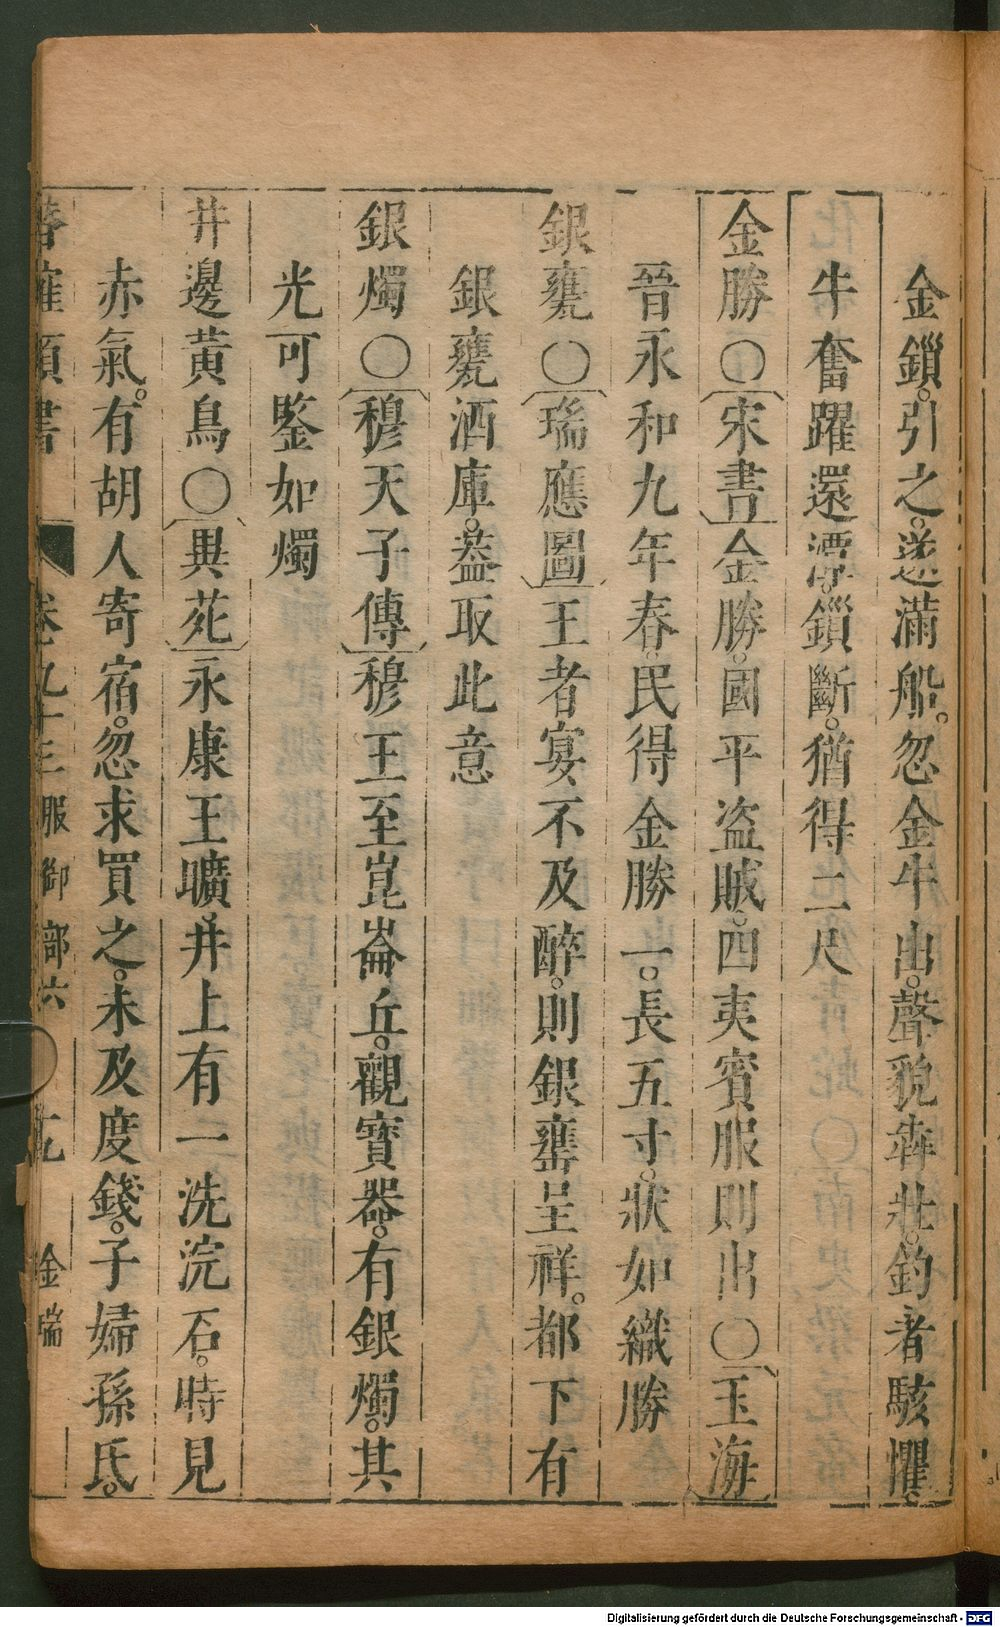 金鎻。引之。遂滿船。忽金牛出。聲貌犇壯。釣者駭懼。
牛奮躍還潭。鎻斷。猶得二尺
金勝〇宋書金勝。國平盗賊。四夷賓服則出〇玉海
晉永和九年春。民得金勝一。長五寸。狀如織勝
銀甕〇瑞應圖王者宴不及醉。則銀甕呈祥。都下有
銀甕酒庫。葢取此意
銀燭〇穆天子傳穆王至崑崙丘。觀寶器。有銀燭。其
光可鑒如燭
井邊黃鳥〇異苑永康王曠井上有一洗浣石。時見
赤氣。有胡人寄宿。忽求買之。未及度錢。子婦孫氏。
唐類書 卷九十三 服御部六 金瑞
Digitalisierung gefördert durch die Deutsche Forschungsgemeinschaft - DFG